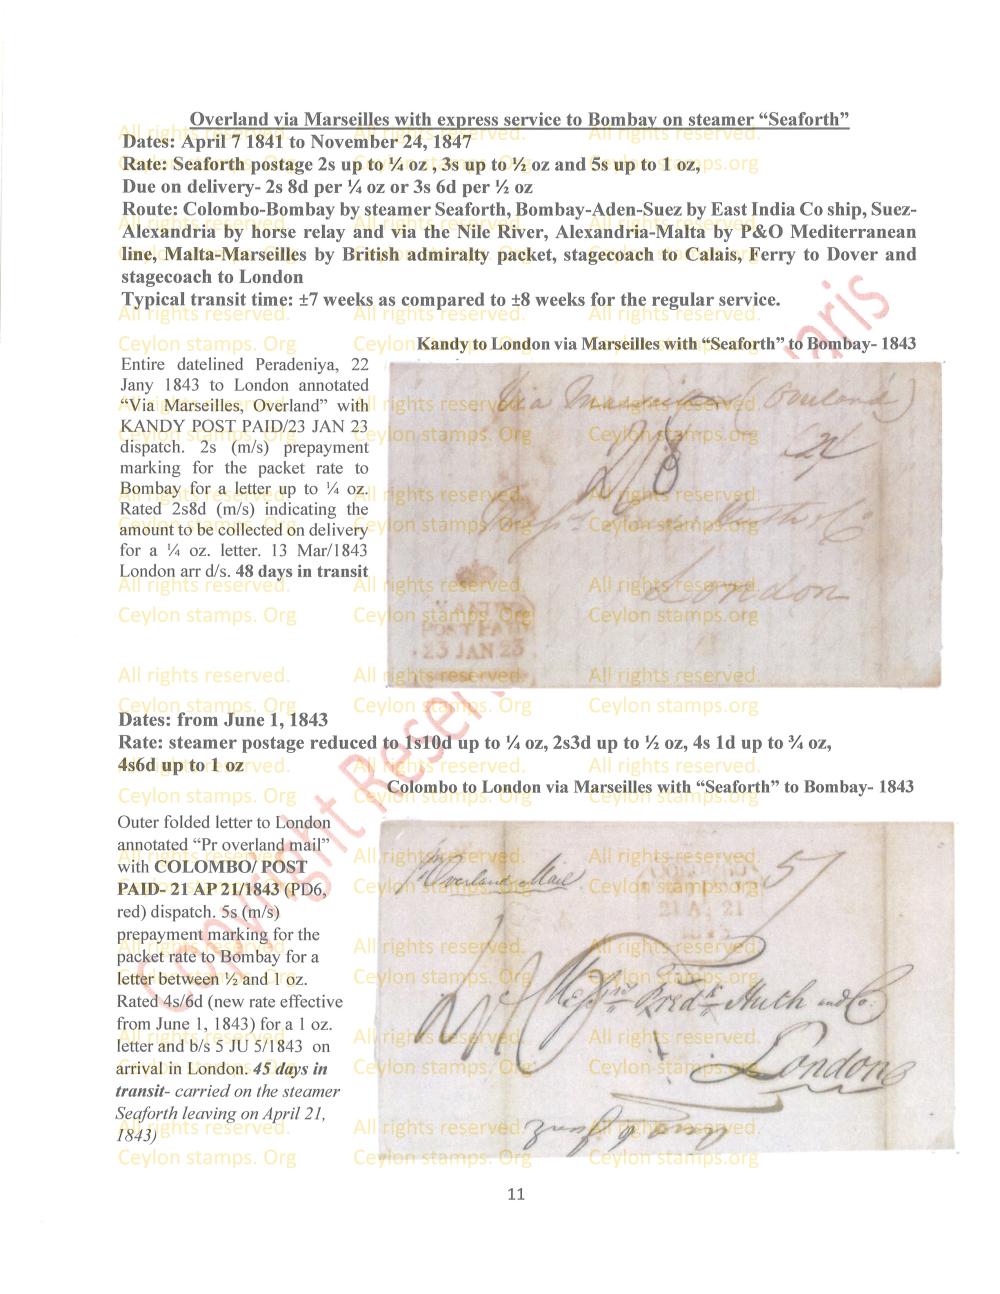 Overland via Marseilles with express service to Bombay on steamer “Seaforth”
Dates: April 7 1841 to November 24, 1847
Rate: Seaforth postage 2s up to ¼ oz , 3s up to ½ oz and 5s up to 1 oz,
Due on delivery- 2s 8d per ¼ oz or 3s 6d per ½ oz
Route: Colombo-Bombay by steamer Seaforth, Bombay-Aden-Suez by East India Co ship, Suez-
Alexandria by horse relay and via the Nile River, Alexandria-Malta by P&O Mediterranean
line, Malta-Marseilles by British admiralty packet, stagecoach to Calais, Ferry to Dover and
stagecoach to London
Typical transit time: ±7 weeks as compared to ±8 weeks for the regular service.
Kandy to London via Marseilles with “Seaforth” to Bombay- 1843
Entire datelined Peradeniya, 22
Jany 1843 to London annotated
“Via Marseilles, Overland” with
KANDY POST PAID/23 JAN 23
dispatch. 2s (m/s) prepayment
marking for the packet rate to
Bombay for a letter up to ¼ oz.
Rated 2s8d (m/s) indicating the
amount to be collected on delivery
for a ¼ oz. letter. 13 Mar/1843
London arr d/s. 48 days in transit
Via Marseilles (Overland)
2/
2/8
London
KANDY
POST PAID
23 JAN 23
Dates: from June 1, 1843
Rate: steamer postage reduced to 1s10d up to ¼ oz, 2s3d up to ½ oz, 4s 1d up to ¾ oz,
4s6d up to 1 oz
Colombo to London via Marseilles with “Seaforth” to Bombay- 1843
Outer folded letter to London
annotated “Pr overland mail”
with COLOMBO/ POST
PAID- 21 AP 21/1843 (PD6,
red) dispatch. 5s (m/s)
prepayment marking for the
packet rate to Bombay for a
letter between ½ and 1 oz.
Rated 4s/6d (new rate effective
from June 1, 1843) for a 1 oz.
letter and b/s 5 JU 5/1843 on
arrival in London. 45 days in
transit- carried on the steamer
Seaforth leaving on April 21,
1843)
Pr Overland Mail
COLOMBO
21 AP 21
5/
Messrs Fredk Huth and Co.
London
11
All rights reserved.
Ceylon stamps. Org
Ceylon stamps.org
Copyright Reserved